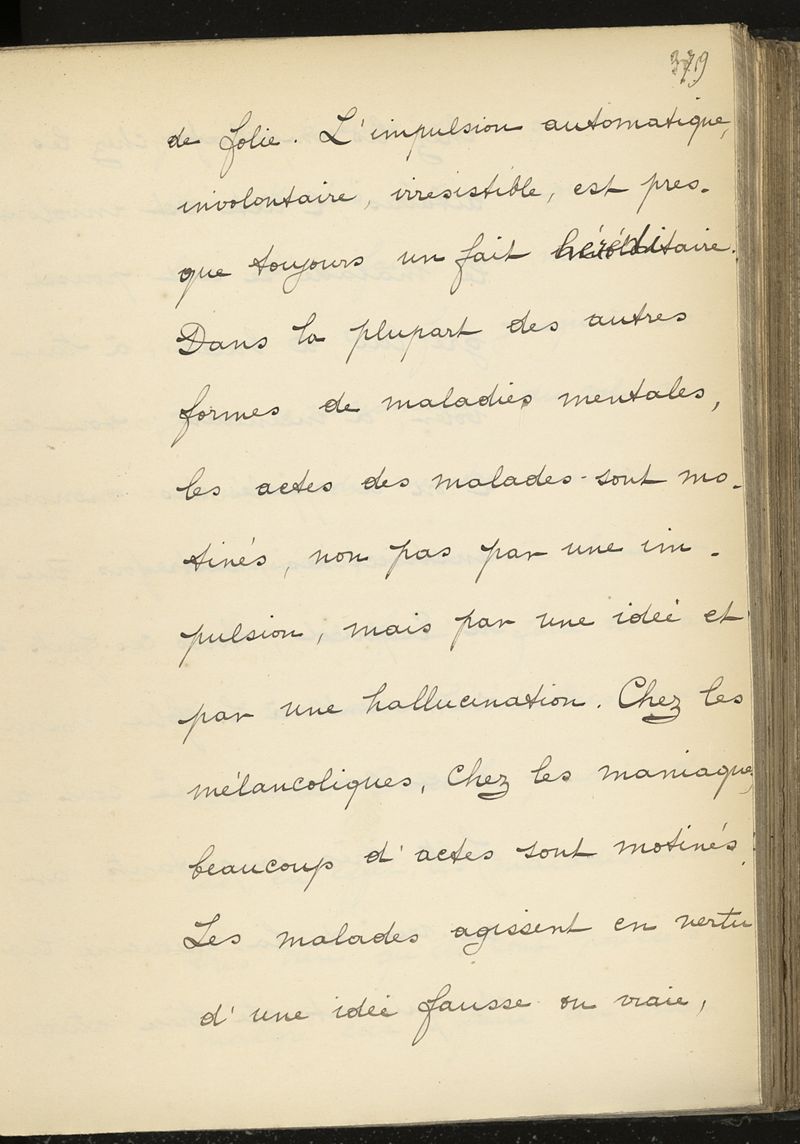 379
de folie. L'impulsion automatique,
involontaire, irresistible, est pres-
que toujours un fait héréditaire.
Dans la plupart des autres
formes de maladies mentales,
les actes des malades sont mo-
tivés, non pas par une im-
pulsion, mais par une idée et
par une hallucination. Chez les
mélancoliques, Chez les maniaques,
beaucoup d'actes sont motivés.
Les malades agissent en vertu
d'une idée fausse ou vraie,